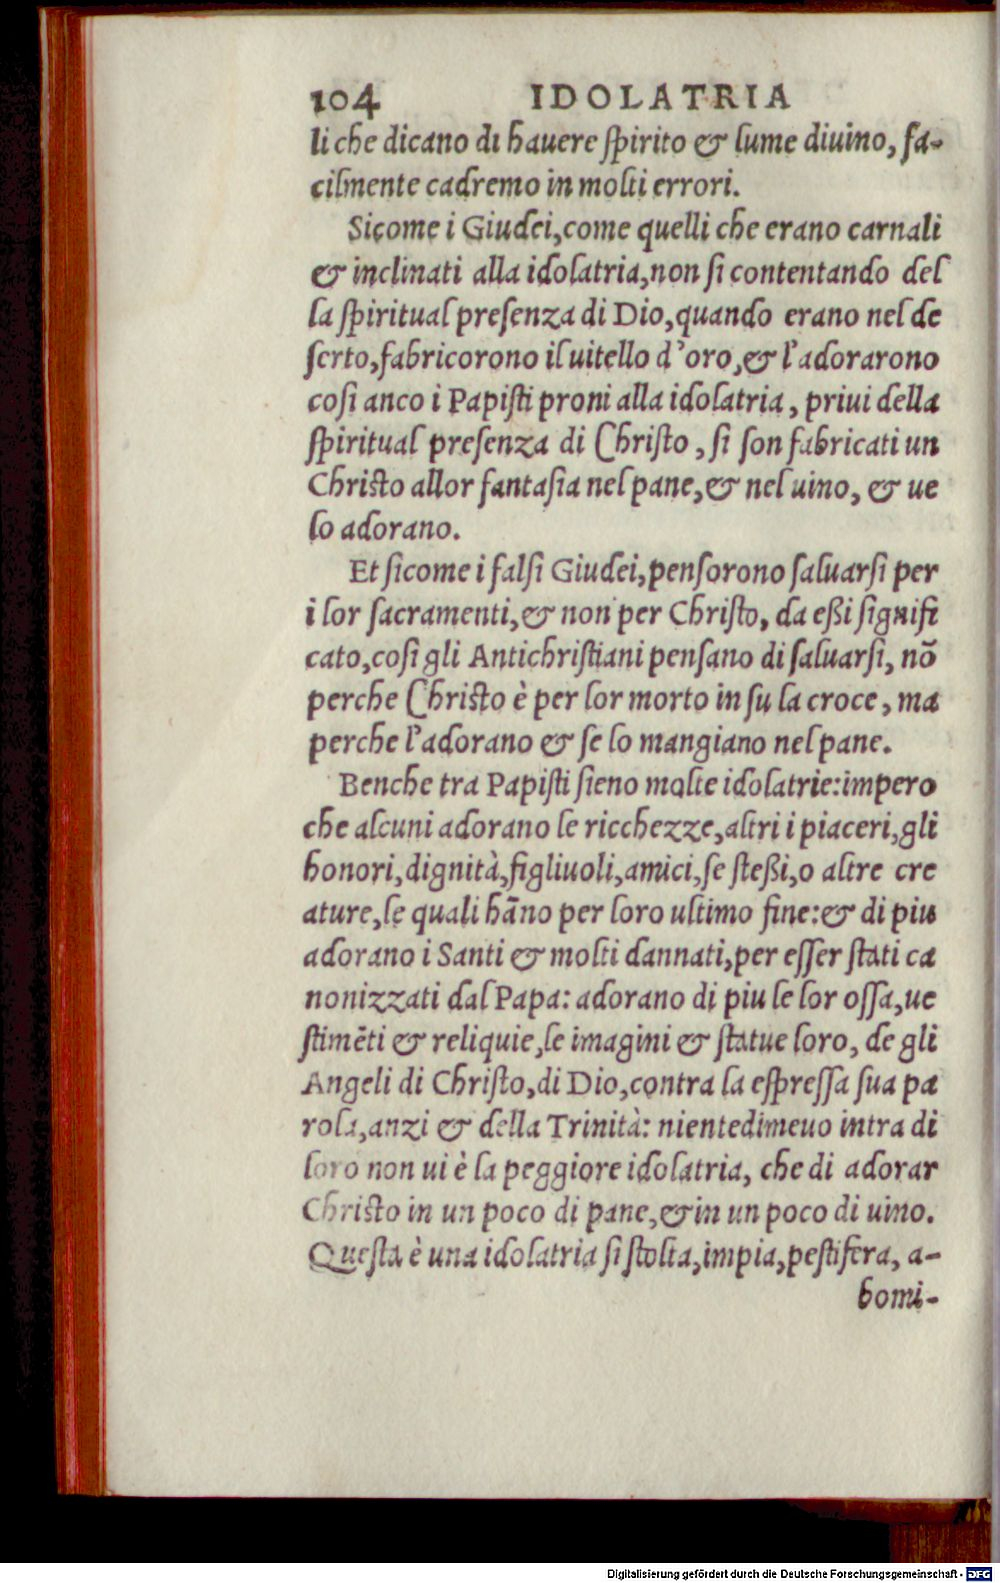 104 IDOLATRIA
li che dicano di hauere ſpirito & lume diuino, fa-
cilmente cadremo in molti errori.
Sicome i Giudei,come quelli che erano carnali
& inclinati alla idolatria,non ſi contentando del
la ſpiritual preſenza di Dio,quando erano nel de
ſerto,fabricorono il uitello d'oro,& l'adorarono
coſi anco i Papiſti proni alla idolatria, priui della
ſpiritual preſenza di Chriſto, ſi ſon fabricati un
Chriſto allor fantaſia nel pane,& nel uino, & ue
lo adorano.
Et ſicome i falſi Giudei,penſorono ſaluarſi per
i lor ſacramenti,& non per Chriſto, da eßi ſignifi
cato,coſi gli Antichriſtiani penſano di ſaluarſi, nō
perche Chriſto è per lor morto in ſu la croce, ma
perche l'adorano & ſe lo mangiano nel pane.
Benche tra Papiſti ſieno molte idolatrie:impero
che alcuni adorano le ricchezze,altri i piaceri,gli
honori,dignità,figliuoli,amici,ſe ſteßi,o altre cre
ature,le quali hāno per loro ultimo fine:& di piu
adorano i Santi & molti dannati,per eſſer ſtati ca
nonizzati dal Papa: adorano di piu le lor oſſa,ue
ſtimēti & reliquie,le imagini & ſtatue loro, de gli
Angeli di Chriſto,di Dio,contra la eſpreſſa ſua pa
rola,anzi & della Trinità: nientedimeuo intra di
loro non ui è la peggiore idolatria, che di adorar
Chriſto in un poco di pane,& in un poco di uino.
Queſta è una idolatria ſi ſtolta,impia,peſtifera, a-
bomi-
Digitalisierung gefördert durch die Deutsche Forschungsgemeinschaft - DFG